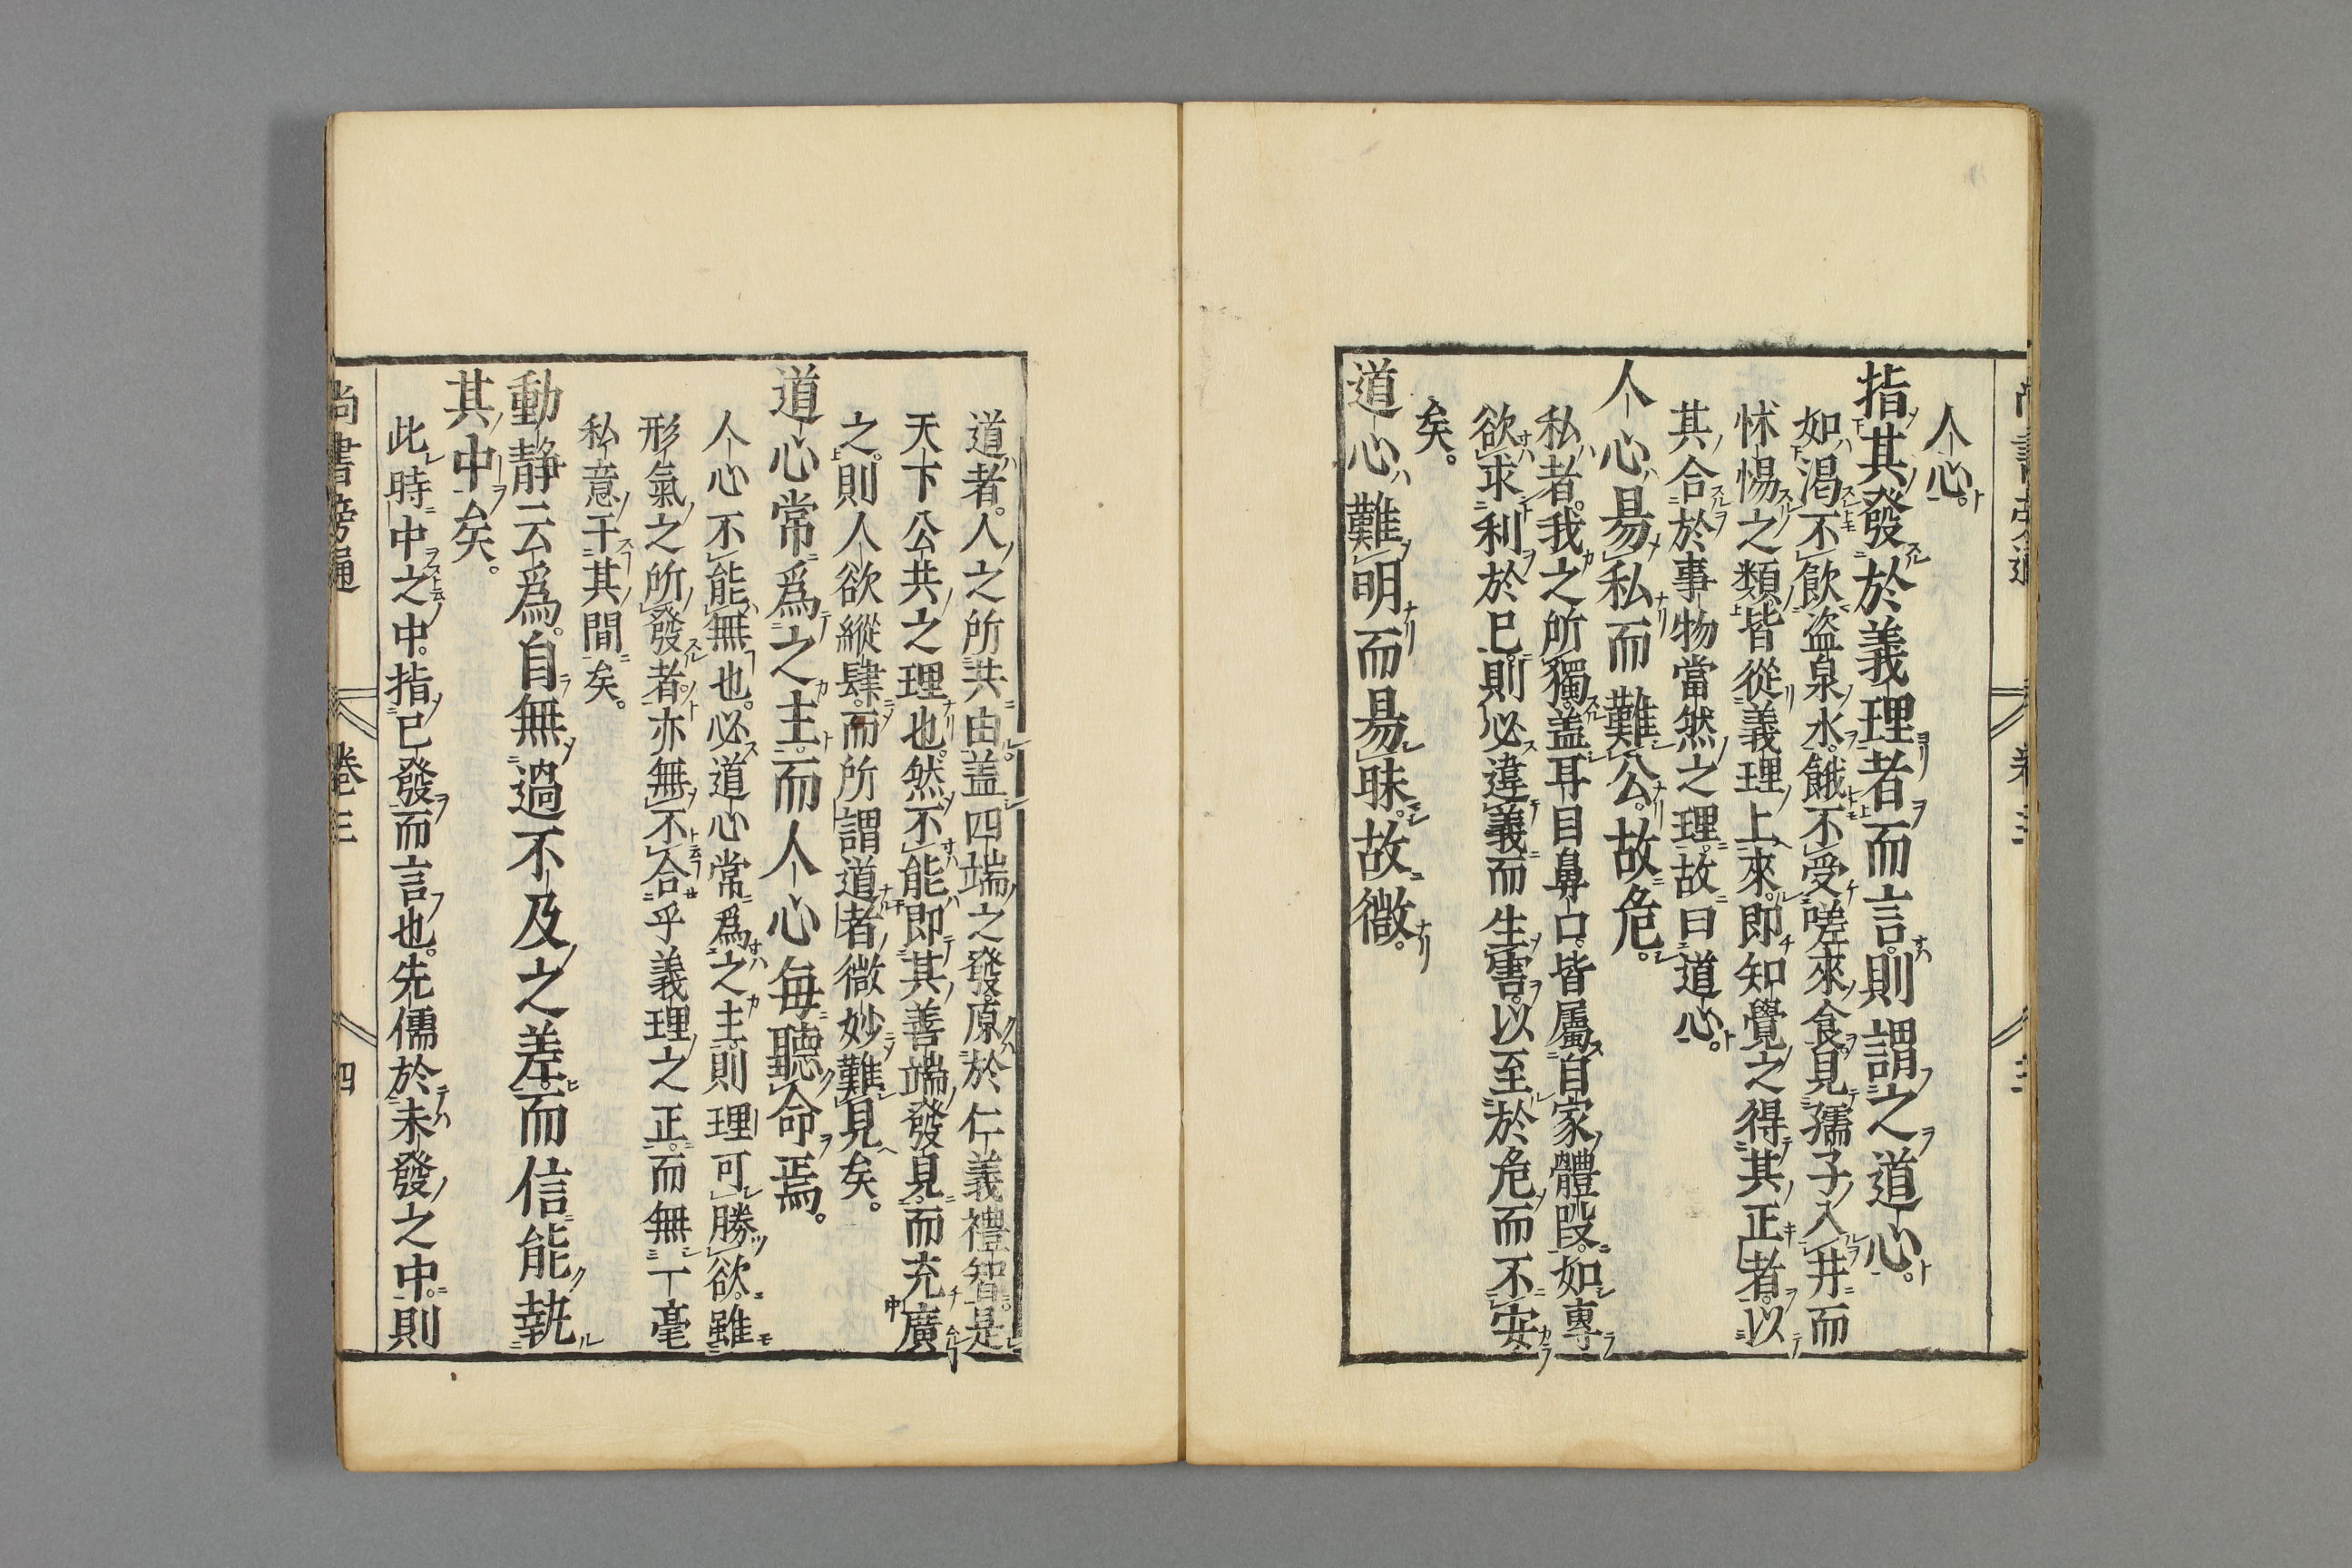 人心。
指其發於義理者而言。則謂之道心。
如渴不飮盗泉水。餓不受嗟來食見孺子入井而
怵惕之類皆從義理上來。即知覺之得其正者。以
其合於事物當然之理。故曰道心。
人心昜私而難公。故危。
私者。我之所獨。盖耳目鼻口。皆屬自家體段。如專
欲求利於已。則必違義而生害。以至於危而不安
矣。
道心難明而昜昧。故微。
道者。人之所共由。盖四端之發。原於仁義禮智。是
天下公共之理也。然不能即其善端發見。而充廣
之。則人欲縱肆。而所謂道者微妙難見矣。
道心常爲之主。而人心每聽命焉。
人心不能無也。必道心常爲之主。則理可勝欲。雖
形氣之所發者。亦無不合乎義理之正。而無一毫
私意干其間矣。
動静云爲。自無過不及之差。而信能執
其中矣。
此時中之中。指已發而言也。先儒於未發之中。則
尚書旁通 卷三 四